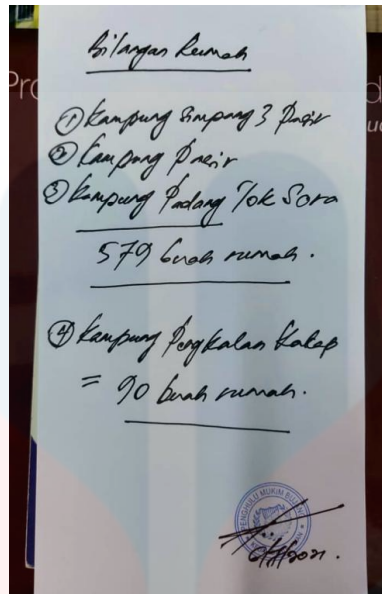 Bilangan Rumah
① Kampung Simpang 3 Pasir
② Kampung Pasir
③ Kampung Padang Tok Sora
579 buah rumah.
④ Kampung Pengkalan Kakap
= 90 buah rumah.
PENGHULU MUKIM
2021.